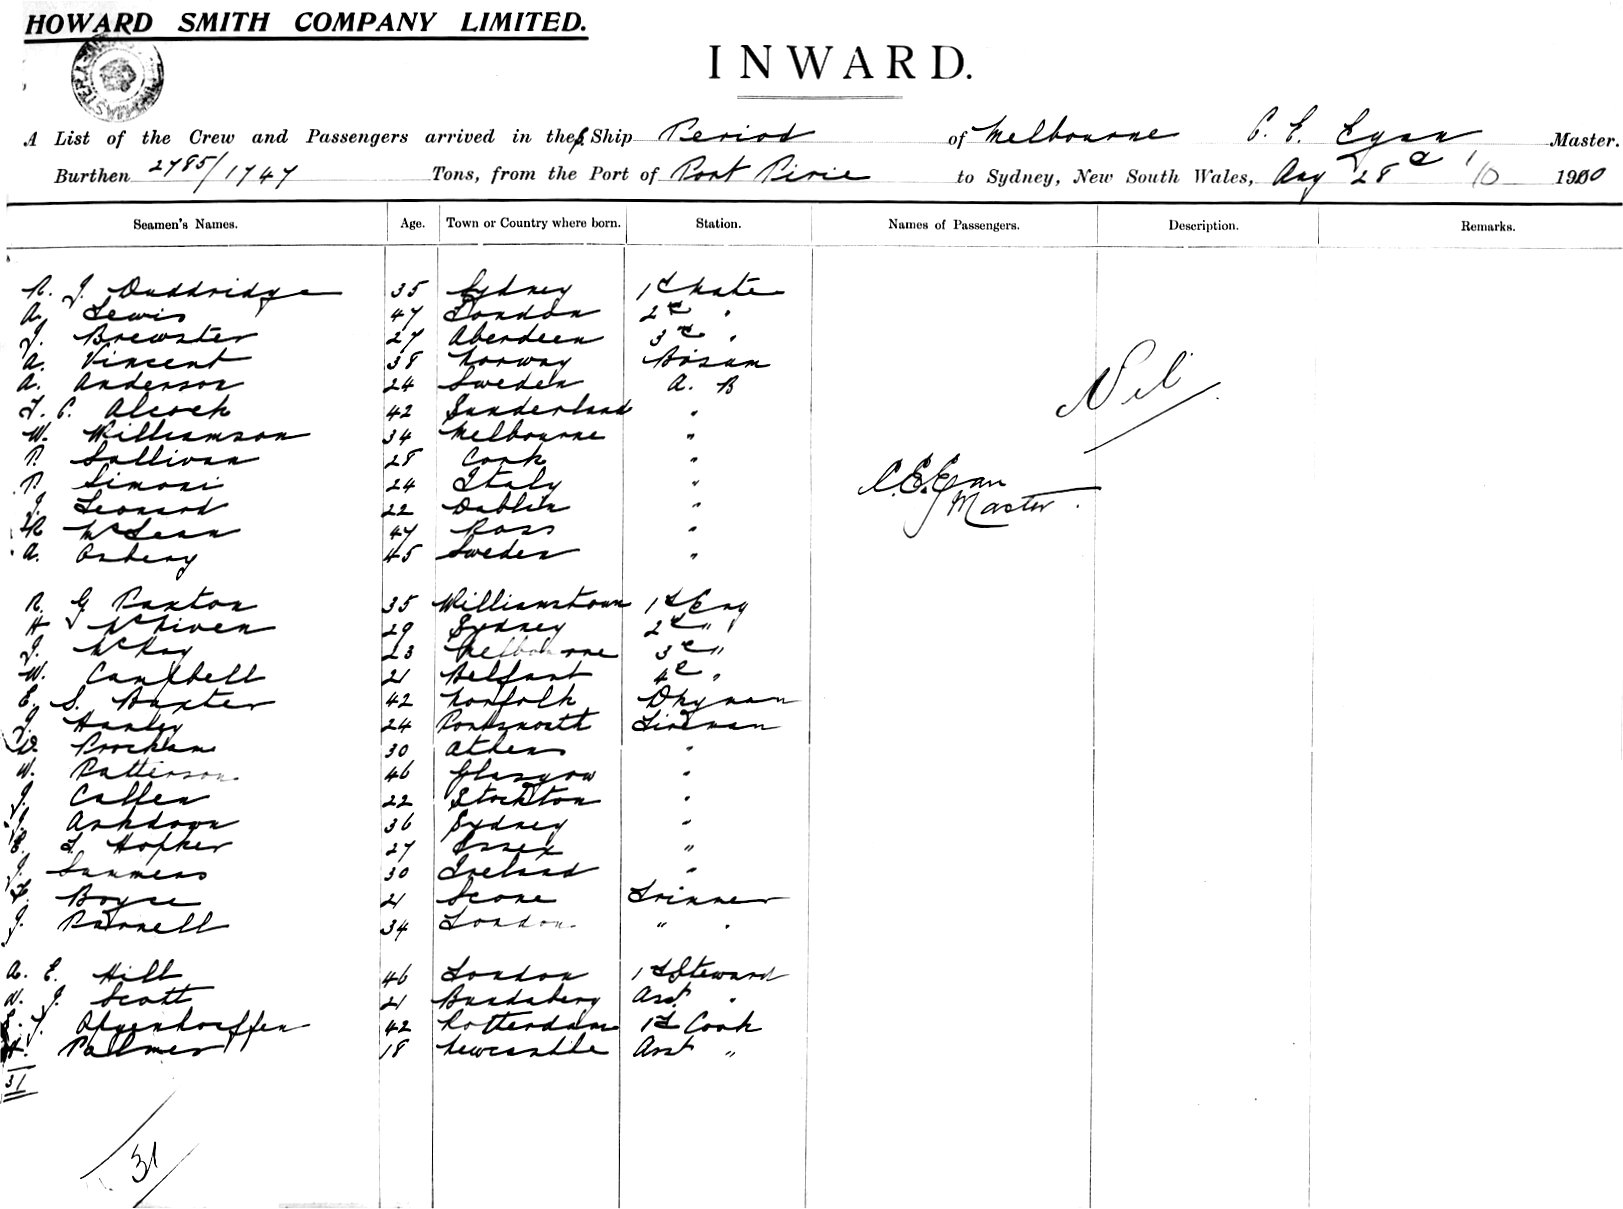 HOWARD SMITH COMPANY LIMITED.
INWARD.
A List of the Crew and Passengers arrived in the S. Ship Period of Melbourne C. E. Egan Master.
Burthen 2785/1747 Tons, from the Port of Port Pirie to Sydney, New South Wales, Aug 28th 1910
Seamen's Names. Age. Town or Country where born. Station. Names of Passengers. Description. Remarks.
R. J. Duddridge 35 Sydney 1st Mate
A. Lewis 47 London 2nd "
J. Brewster 27 Aberdeen 3rd "
A. Vincent 38 Norway Bosun
A. Anderson 24 Sweden A. B
Nil
T. C. Alcock 42 Sunderland "
W. Williamson 34 Melbourne "
P. Sullivan 28 Cork "
P. Simoni 24 Italy "
C. E. Egan
Master.
J. Leonard 22 Dublin "
R McLean 47 Ross "
A. Osberg 45 Sweden "
R. G. Paxton 35 Williamstown 1st Eng
H McNiven 29 Sydney 2nd "
J. McKay 23 Melbourne 3rd "
W. Campbell 21 Belfast 4th "
E. S. Baxter 42 Norfolk Dkyman
J. Hanley 24 Portsmouth Fireman
30 Athens "
W. Patterson 46 Glasgow "
J. Cullen 22 Stockton "
J. Ashdown 36 Sydney "
E. F. Hopker 27 Essex "
J. Summers 30 Ireland "
F. Boyce 21 Scone Trimmer
J. Parnell 34 London "
A. E. Hill 46 London 1st Steward
W. J. Scott 21 Bundaberg Asst "
J. 42 Rotterdam 1st Cook
H. Palmer 18 Newcastle Asst "
31
31